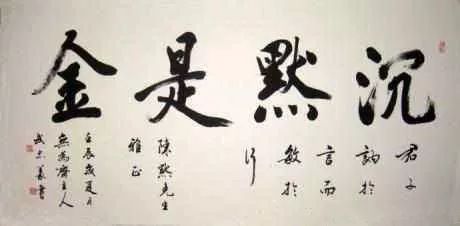 沉默是金
君子
訥於
言而
敏於
行
陳默先生
雅正
壬辰歲夏月
無為齋主人
書